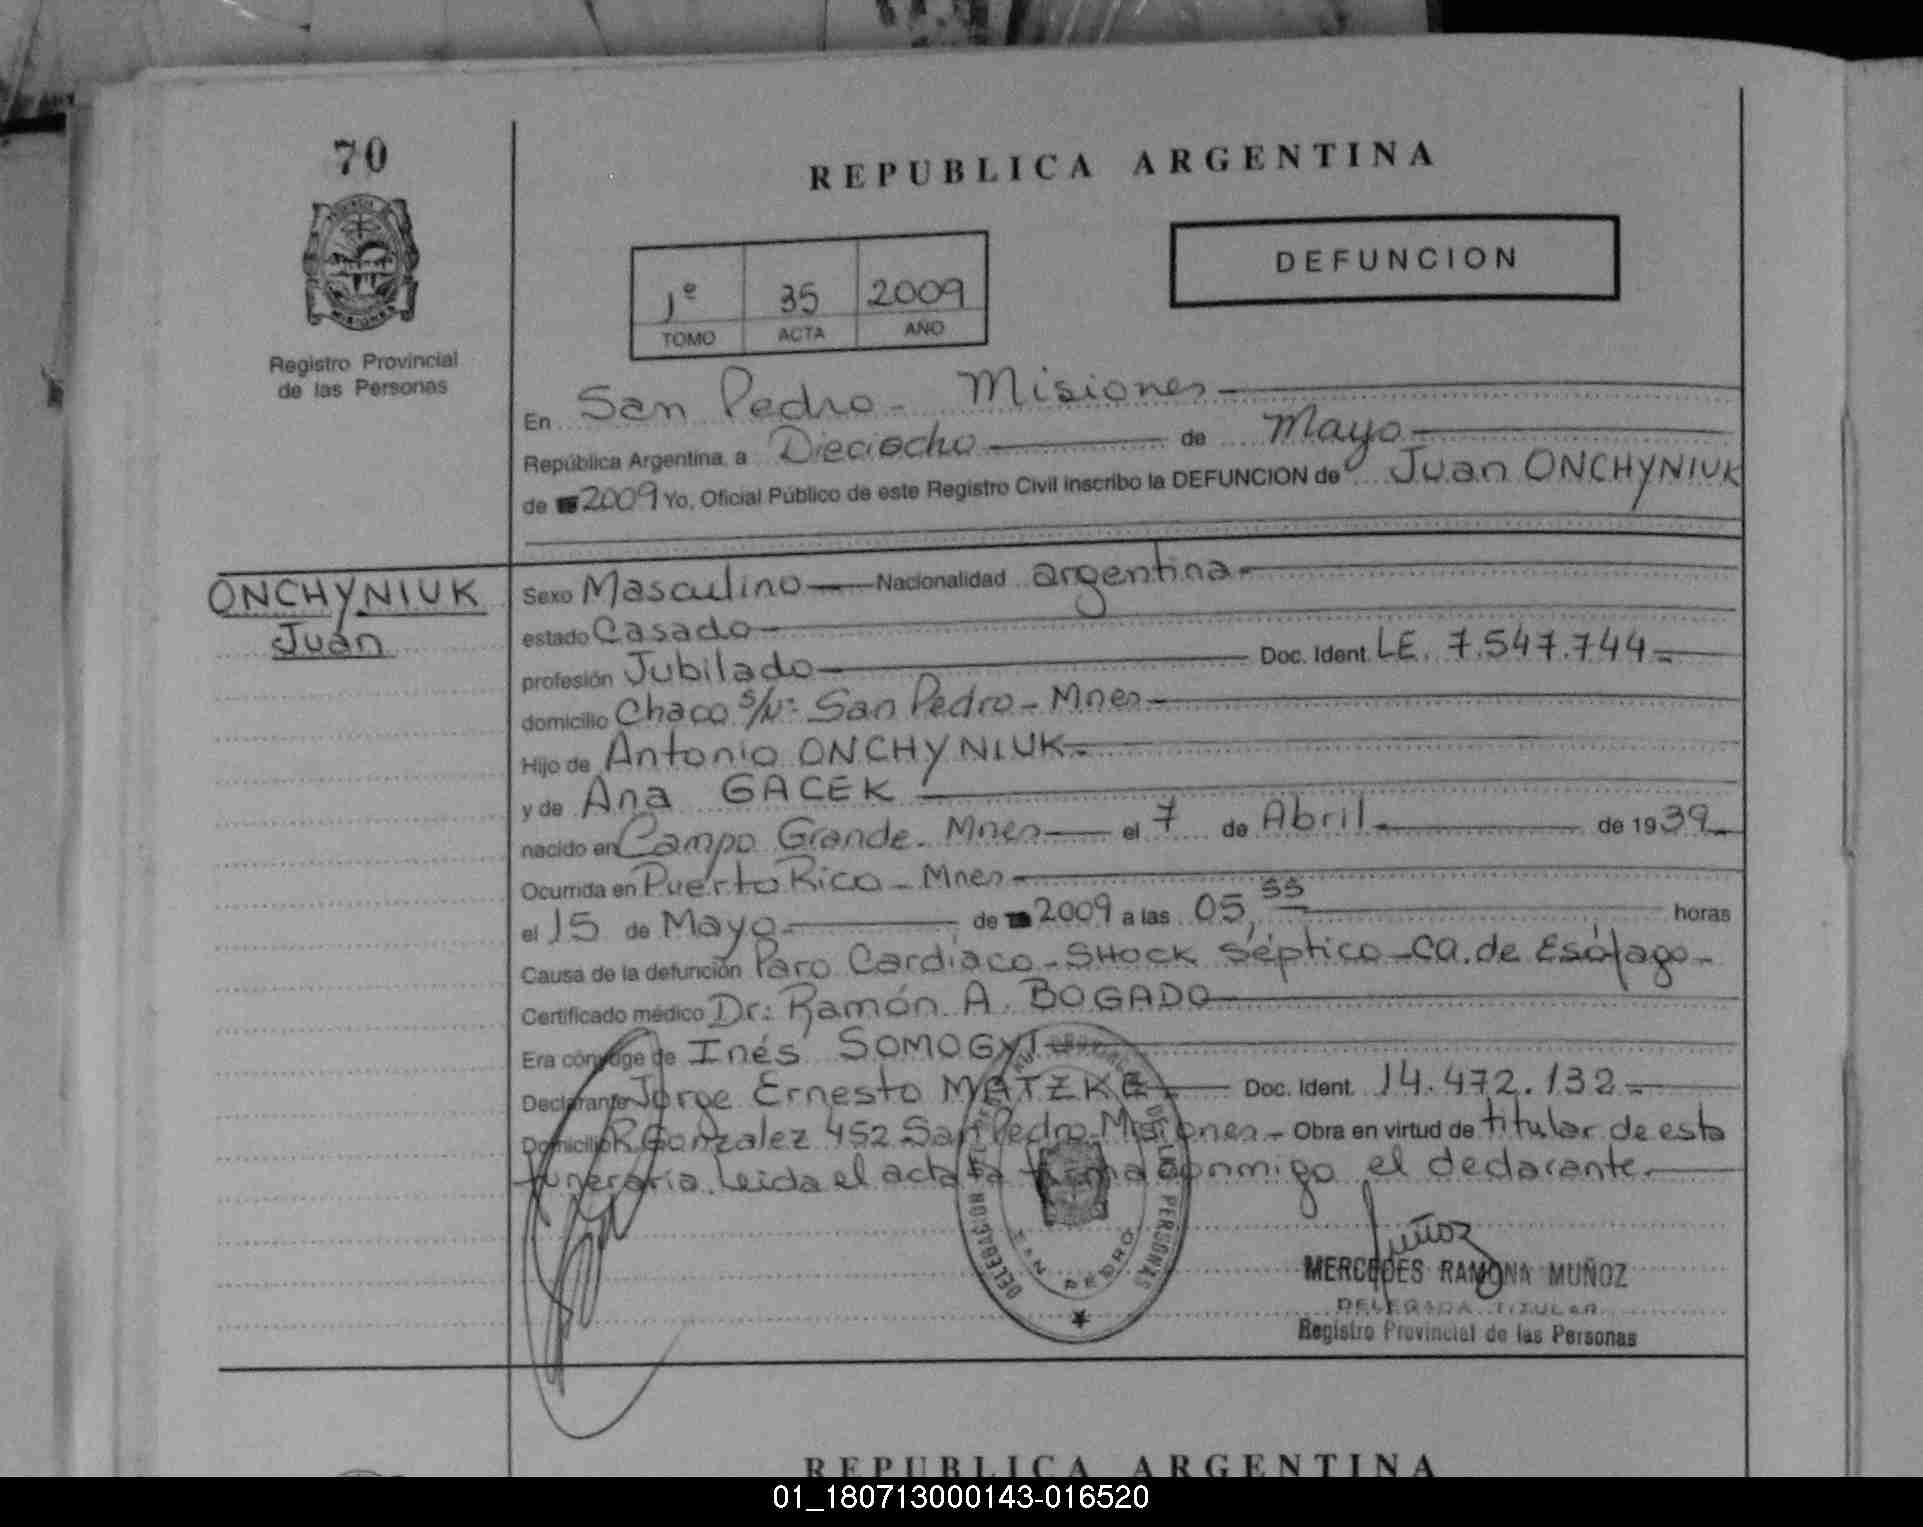 70
REPUBLICA ARGENTINA
DEFUNCION
1º 35 2009
TOMO ACTA AÑO
MISIONES
Registro Provincial
de las Personas
En San Pedro - Misiones
República Argentina, a Dieciocho de Mayo
de 2009 Yo, Oficial Público de este Registro Civil inscribo la DEFUNCION de Juan ONCHYNIUK
ONCHYNIUK
Juan
Sexo Masculino Nacionalidad argentina
estado Casado
profesión Jubilado Doc. Ident. LE. 7.547.744
domicilio Chaco s/Nº San Pedro - Mnes
Hijo de Antonio ONCHYNIUK
y de Ana GACEK
nacido en Campo Grande - Mnes el 7 de Abril de 1939
Ocurrida en Puerto Rico - Mnes
el 15 de Mayo de 2009 a las 05,55 horas
Causa de la defunción Paro Cardíaco - SHOCK Séptico - CA. de Esófago -
Certificado médico Dr: Ramón A. BOGADO
Era cónyuge de Inés SOMOGYI
Declarante Jorge Ernesto METZKE Doc. Ident. 14.472.132
Domicilio R. Gonzalez 452 San Pedro - Misiones - Obra en virtud de titular de esta
funeraria. Leida el acta la firma conmigo el declarante.
DELEGACION
DE LAS PERSONAS
SAN PEDRO
Muñoz
MERCEDES RAMONA MUÑOZ
DELEGADA TITULAR
Registro Provincial de las Personas
REPUBLICA ARGENTINA
01_180713000143-016520